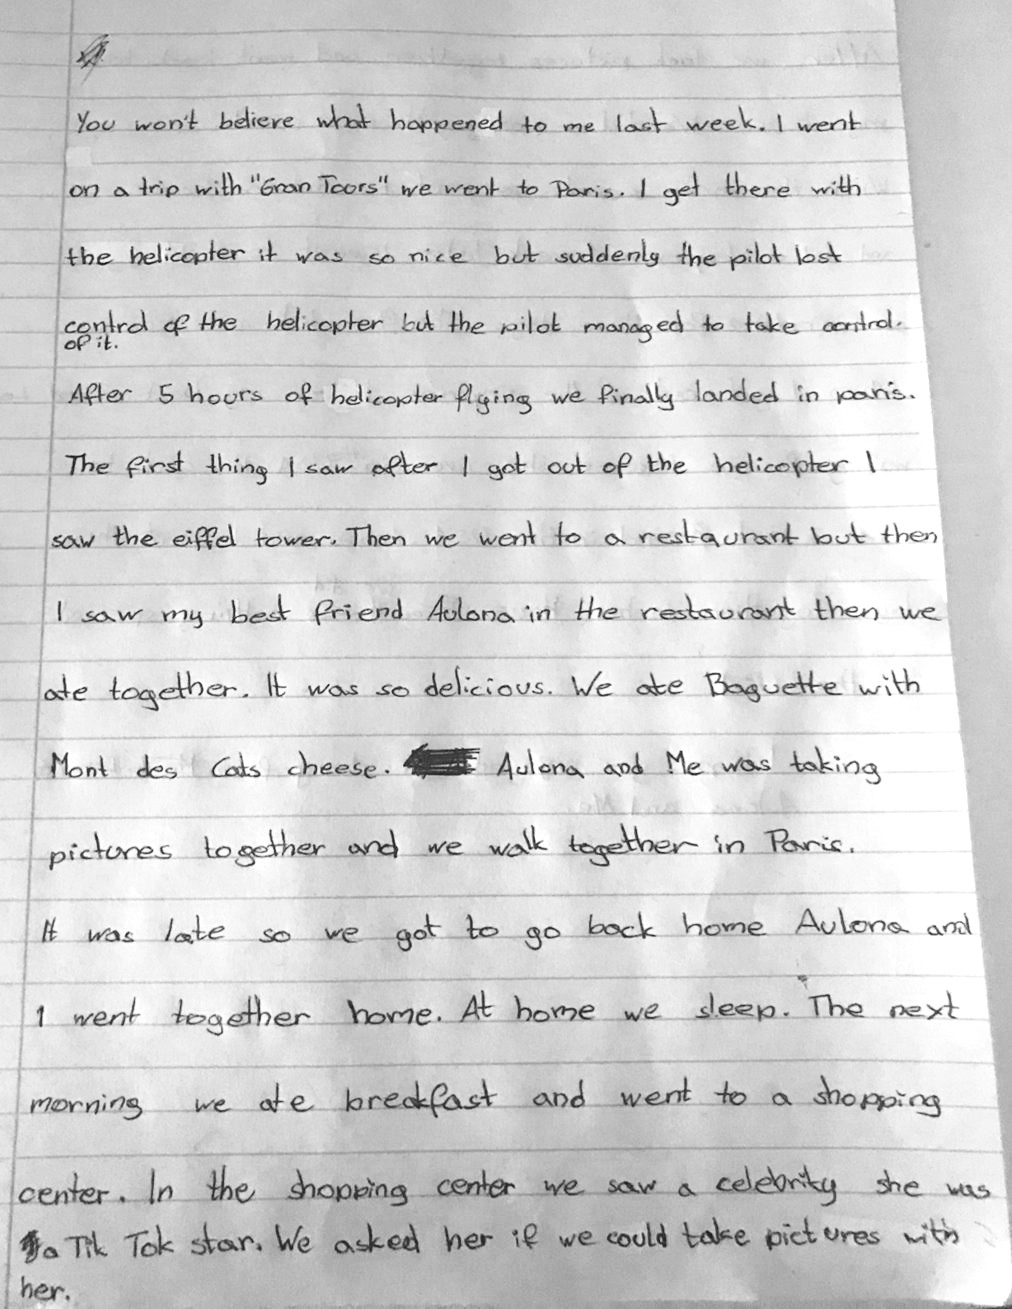 You won't believe what happened to me last week. I went
on a trip with "Gran Toors" we went to Paris. I get there with
the helicopter it was so nice but suddenly the pilot lost
control of the helicopter but the pilot managed to take control.
of it.
After 5 hours of helicopter flying we finally landed in paris.
The first thing I saw after I got out of the helicopter I
saw the eiffel tower. Then we went to a restaurant but then
I saw my best friend Aulona in the restaurant then we
ate together. It was so delicious. We ate Baguette with
Mont des Cats cheese. Aulona and Me was taking
pictures together and we walk together in Paris.
It was late so we got to go back home Aulona and
I went together home. At home we sleep. The next
morning we ate breakfast and went to a shopping
center. In the shopping center we saw a celebrity she was
a Tik Tok star. We asked her if we could take pictures with
her.